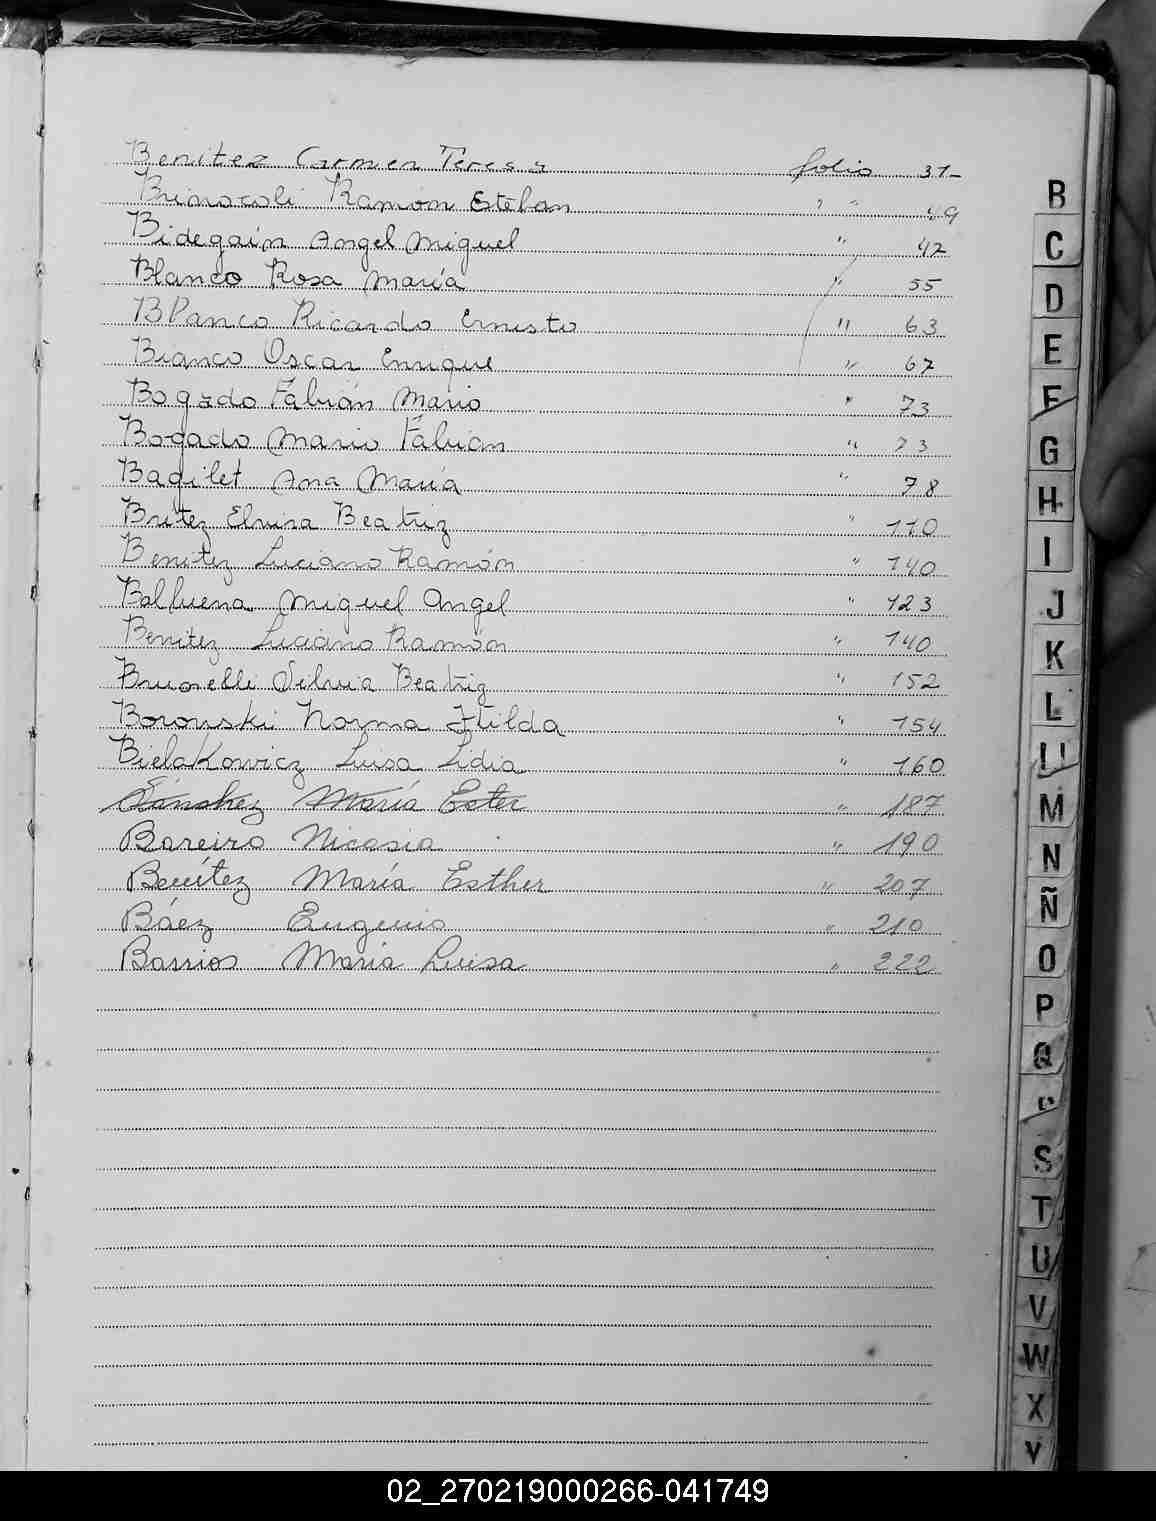 Benitez Carmen Teresa folio 31-
Ramón Esteban " 49
Bidegain Angel Miguel " 42
Blanco Rosa María " 55
Blanco Ricardo Ernesto " 63
Bianco Oscar Enrique " 67
Bogado Fabián Mario " 73
Bogado Mario Fabián " 73
Bagilet Ana María " 78
Britez Elvira Beatriz " 110
Benitez Luciano Ramón " 140
Balbuena Miguel Angel " 123
Benitez Luciano Ramón " 140
Brunelli Silvia Beatriz " 152
Boronski Norma Hilda " 154
Bielakowicz Luisa Lidia " 160
Sánchez María Ester " 187
Bareiro Nicasia " 190
Benítez María Esther " 207
Báez Eugenio " 210
Barrios María Luisa " 222
B
C
D
E
F
G
H
I
J
K
L
M
N
Ñ
O
P
Q
S
T
U
V
W
X
Y
02_270219000266-041749